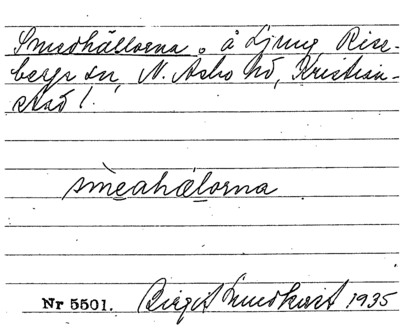 Smedhällorna. å Ljung Rise-
berga sn, N. Åsbo hd, Kristian-
stad l.
smèahælorna
Nr 5501. Birgit Lundkvist 1935